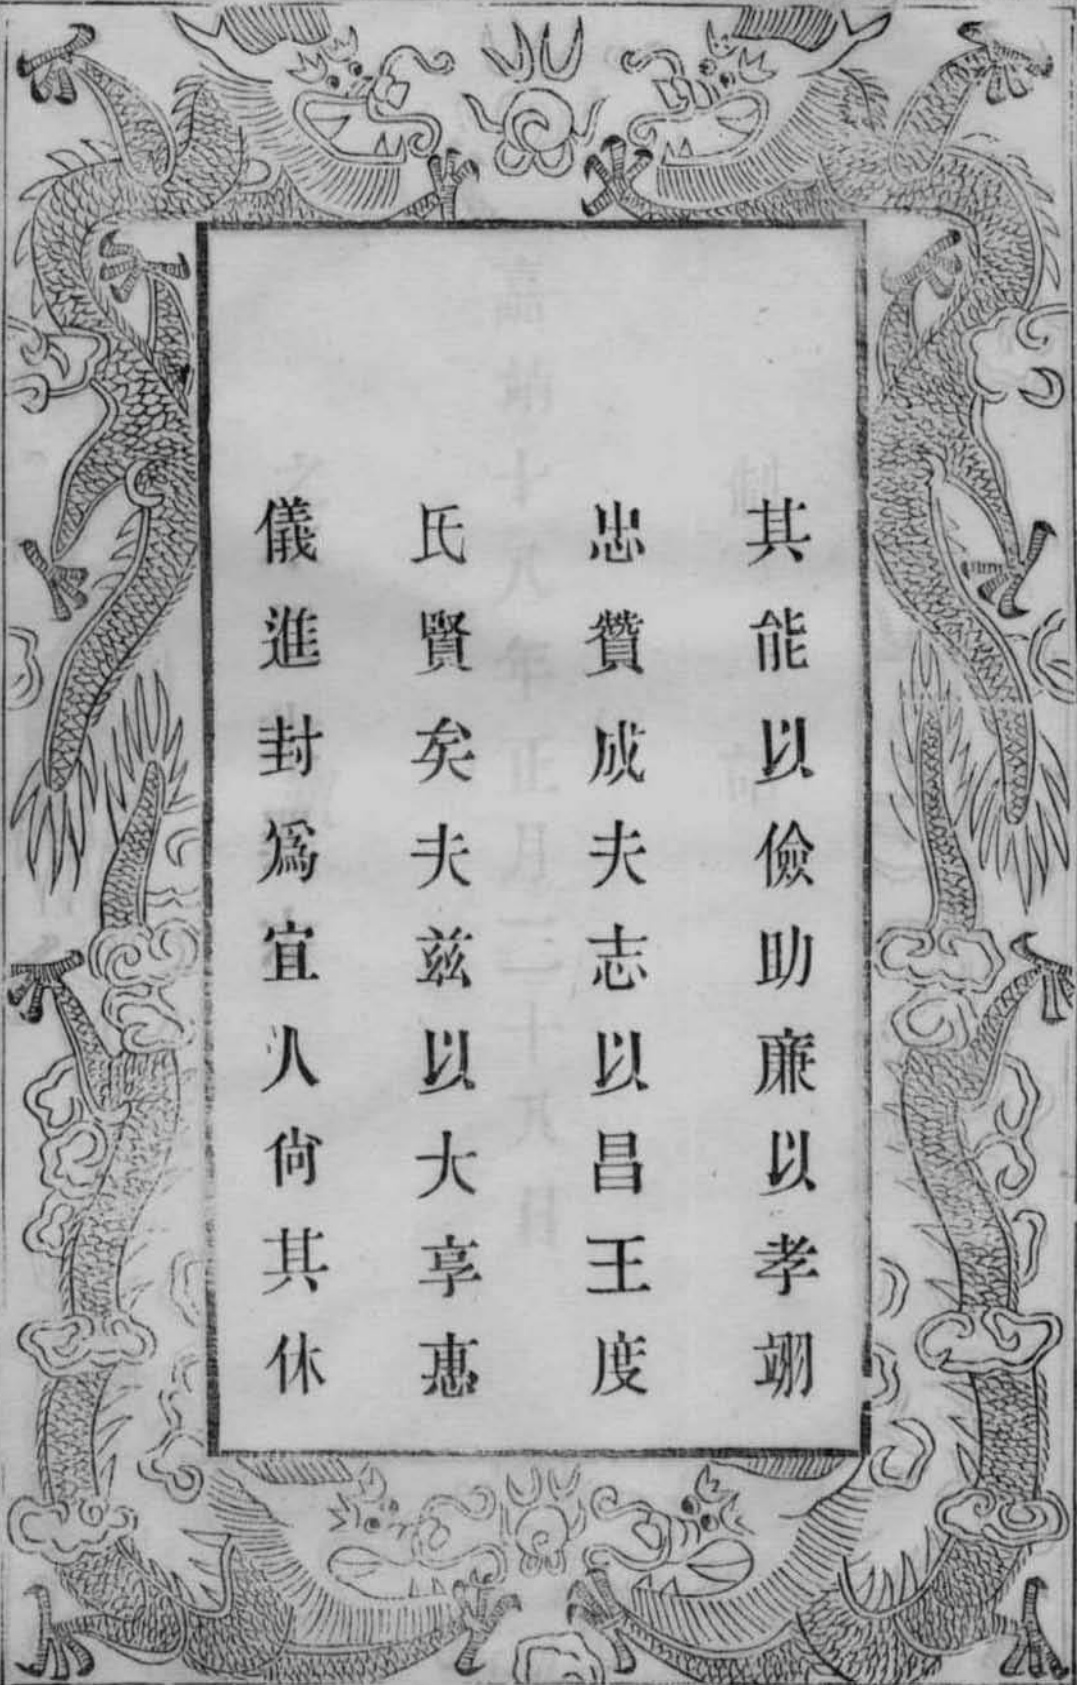 其能以儉助廉以孝翊
忠贊成夫志以昌王度
氏賢矣夫兹以大享惠
儀進封爲宜人尙其休